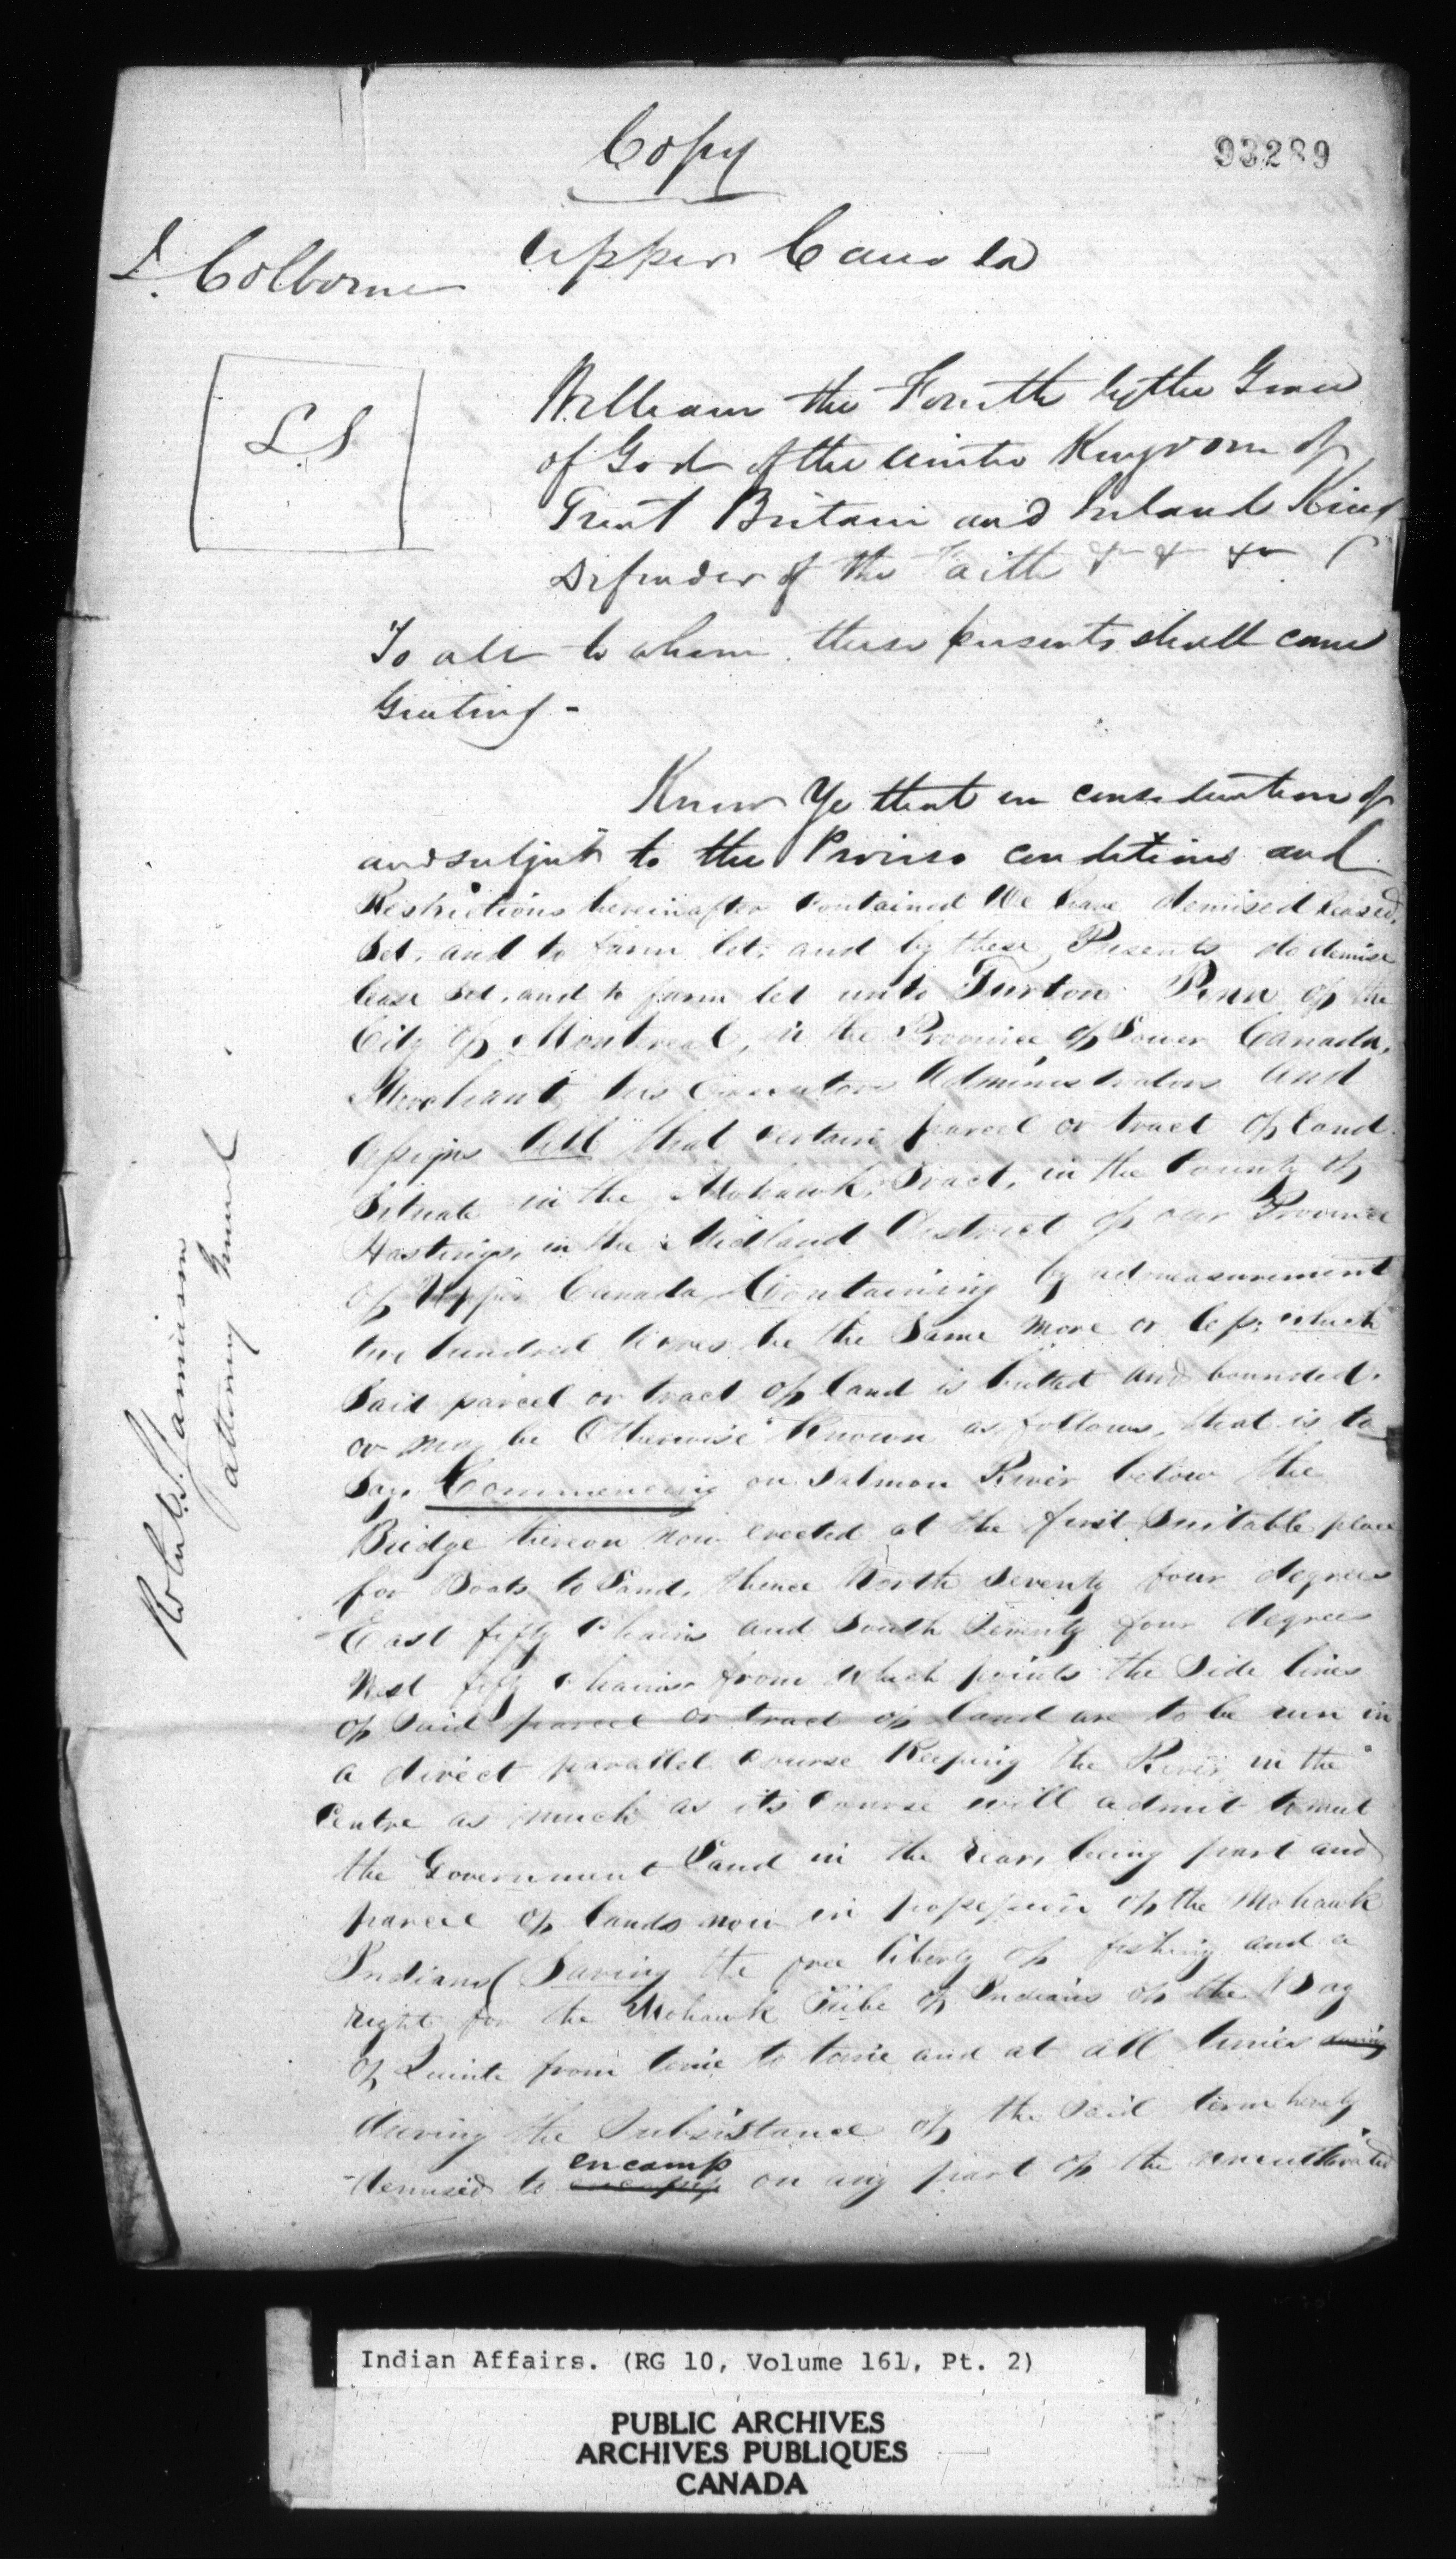 Copy
93289
J. Colborne
Upper Canada
L.S
William the Fourth by the Grace
of God of the United Kingdom of
Great Britain and Ireland King
Defender of the Faith & & &
To all to whom these presents shall come
Greeting -
Know Ye that in consideration of
and subject to the Proviso conditions and
Restrictions hereinafter contained We have demised leased,
Set, and to farm let; and by these Presents do demise
lease Set, and to farm let unto Turton Penn of the
City of Montreal, in the Province of Lower Canada,
Merchant, his Executors Administrators and
Assigns All that certain parcel or tract of land
Situate in the Mohawk Tract, in the County of
Hastings, in the Midland District of our Province
of Upper Canada, Containing by admeasurement
two hundred Acres be the Same more or less; which
Said parcel or tract of land is butted and bounded.
or may be Otherwise Known as follows, that is to
Say, Commencing on Salmon River below the
Bridge thereon now erected at the first Suitable place
for Boats to Land, thence North Seventy four degrees
East fifty Chains and South Seventy four degrees
West fifty chains from which points the Side lines
of Said parcel or tract of land are to be run in
a direct parallel Course Keeping the River in the
Centre as much as its Course will admit to meet
the Government Land in the rear, being part and
parcel of lands now in possession of the Mohawk
Indians (Saving the free liberty of fishing and a
right for the Mohawk Tribe of Indians of the Bay
of Quinte from time to time and at all times
during the Subsistance of the Said term hereby
demised to encamp on any part of the uncultivated
Robt. S. Jamieson
attorney General
Indian Affairs. (RG 10, Volume 161, Pt. 2)
PUBLIC ARCHIVES
ARCHIVES PUBLIQUES
CANADA